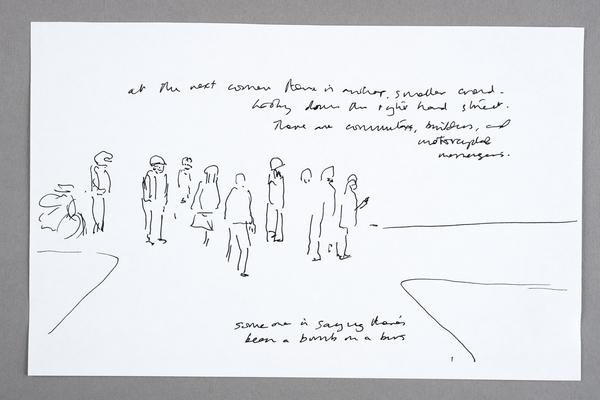 at the next corner there is another, smaller crowd.
looking down the right hand street.
There are commuters, builders, and
motorcycle
messengers.
someone is saying there's
been a bomb on a bus